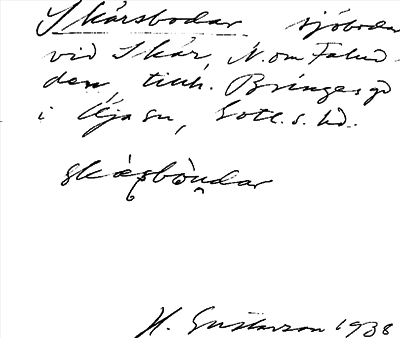 Skårsbodar sjöbodar
vid Skår, N. om Falud-
den, tillh. Bringes gd
i Öja sn, Gotl. s. hd.
skårbòudar
H. Gustavson 1938